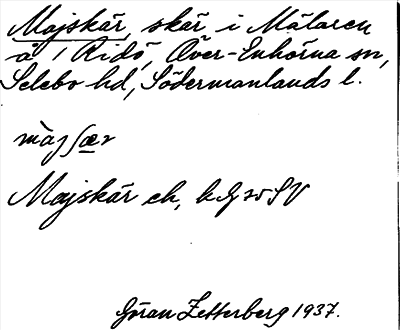 Majskär, skär i Mälaren
å / Ridö, Över-Enhörna sn,
Selebo hd, Södermanlands l.
màjʃær
Majskär ek,
Göran Zetterberg 1937.